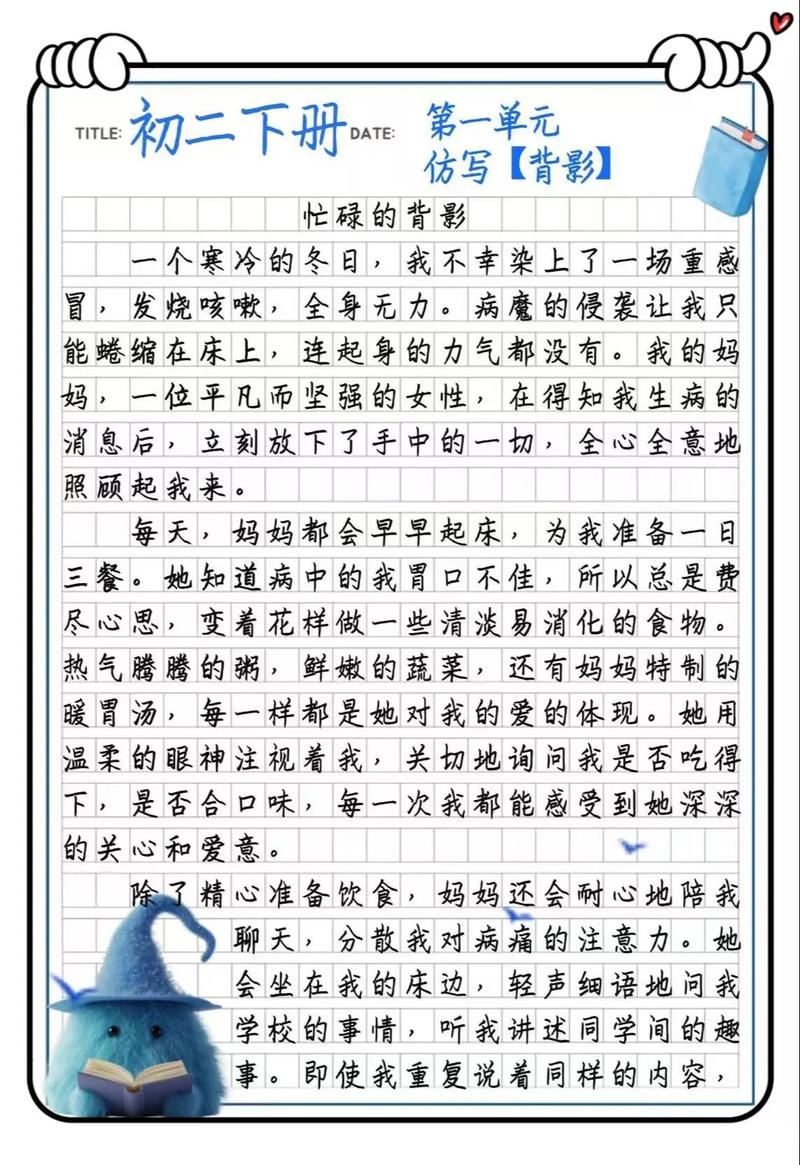 TITLE: 初二下册 DATE: 第一单元
仿写【背影】
忙碌的背影
一个寒冷的冬日，我不幸染上了一场重感
冒，发烧咳嗽，全身无力。病魔的侵袭让我只
能蜷缩在床上，连起身的力气都没有。我的妈
妈，一位平凡而坚强的女性，在得知我生病的
消息后，立刻放下了手中的一切，全心全意地
照顾起我来。
每天，妈妈都会早早起床，为我准备一日
三餐。她知道病中的我胃口不佳，所以总是费
尽心思，变着花样做一些清淡易消化的食物。
热气腾腾的粥，鲜嫩的蔬菜，还有妈妈特制的
暖胃汤，每一样都是她对我的爱的体现。她用
温柔的眼神注视着我，关切地询问我是否吃得
下，是否合口味，每一次我都能感受到她深深
的关心和爱意。
除了精心准备饮食，妈妈还会耐心地陪我
聊天，分散我对病痛的注意力。她
会坐在我的床边，轻声细语地问我
学校的事情，听我讲述同学间的趣
事。即使我重复说着同样的内容，